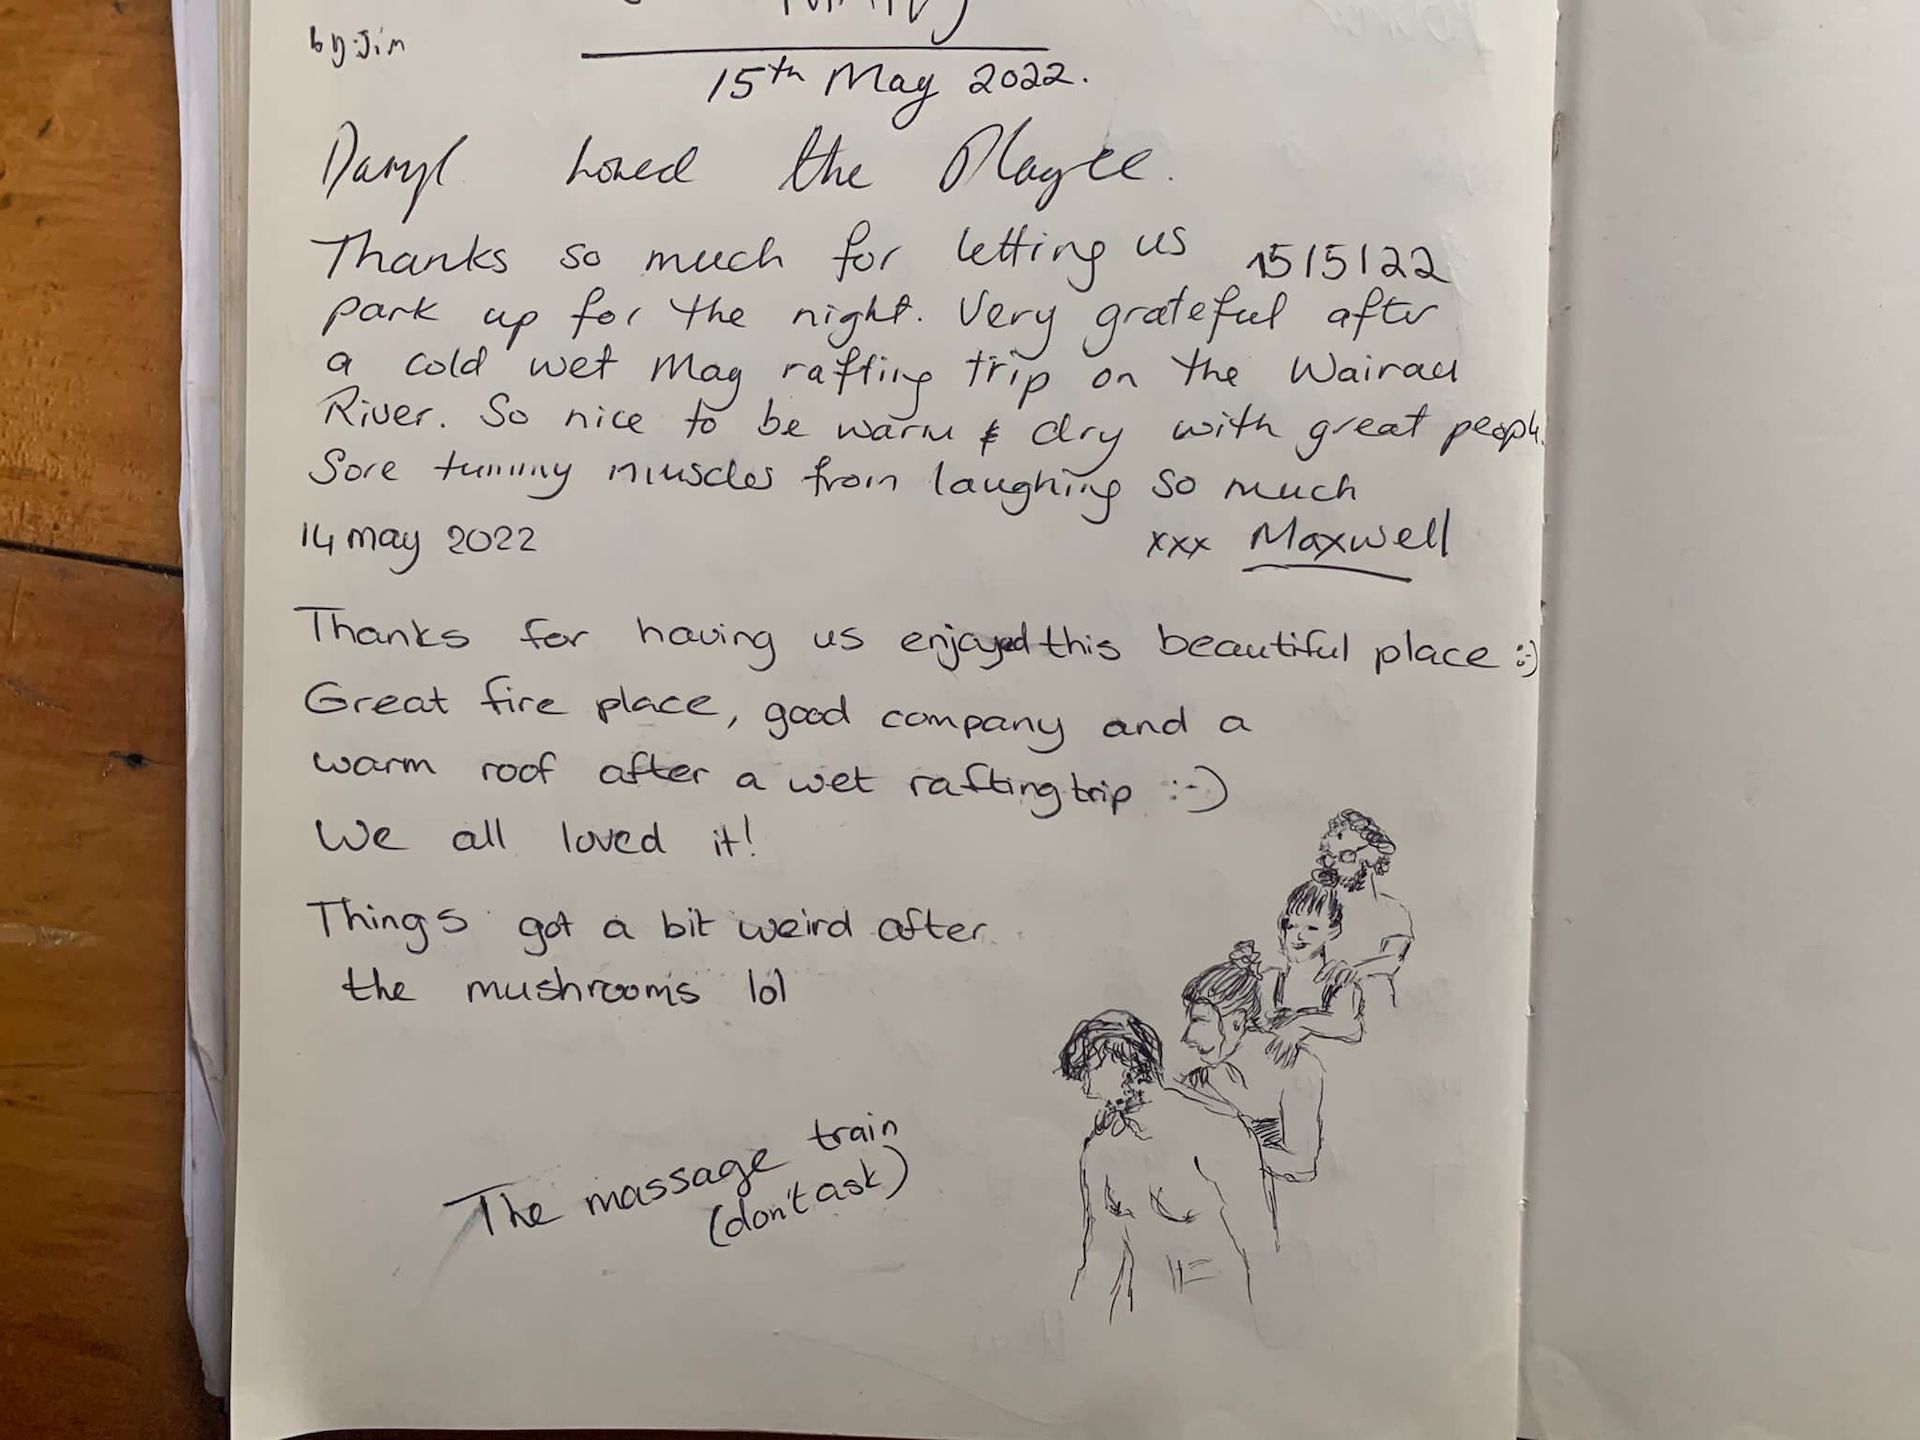 by: Jim
15th May 2022.
Daryl loved the
Thanks so much for letting us 15/5/22
park up for the night. Very grateful after
a cold wet May rafting trip on the Wairau
River. So nice to be warm & dry with great people.
Sore tummy muscles from laughing so much
14 may 2022 xxx Maxwell
Thanks for having us enjoyed this beautiful place :-)
Great fire place, good company and a
warm roof after a wet rafting trip :-)
We all loved it!
Things got a bit weird after
the mushrooms lol
The massage train
(don't ask)